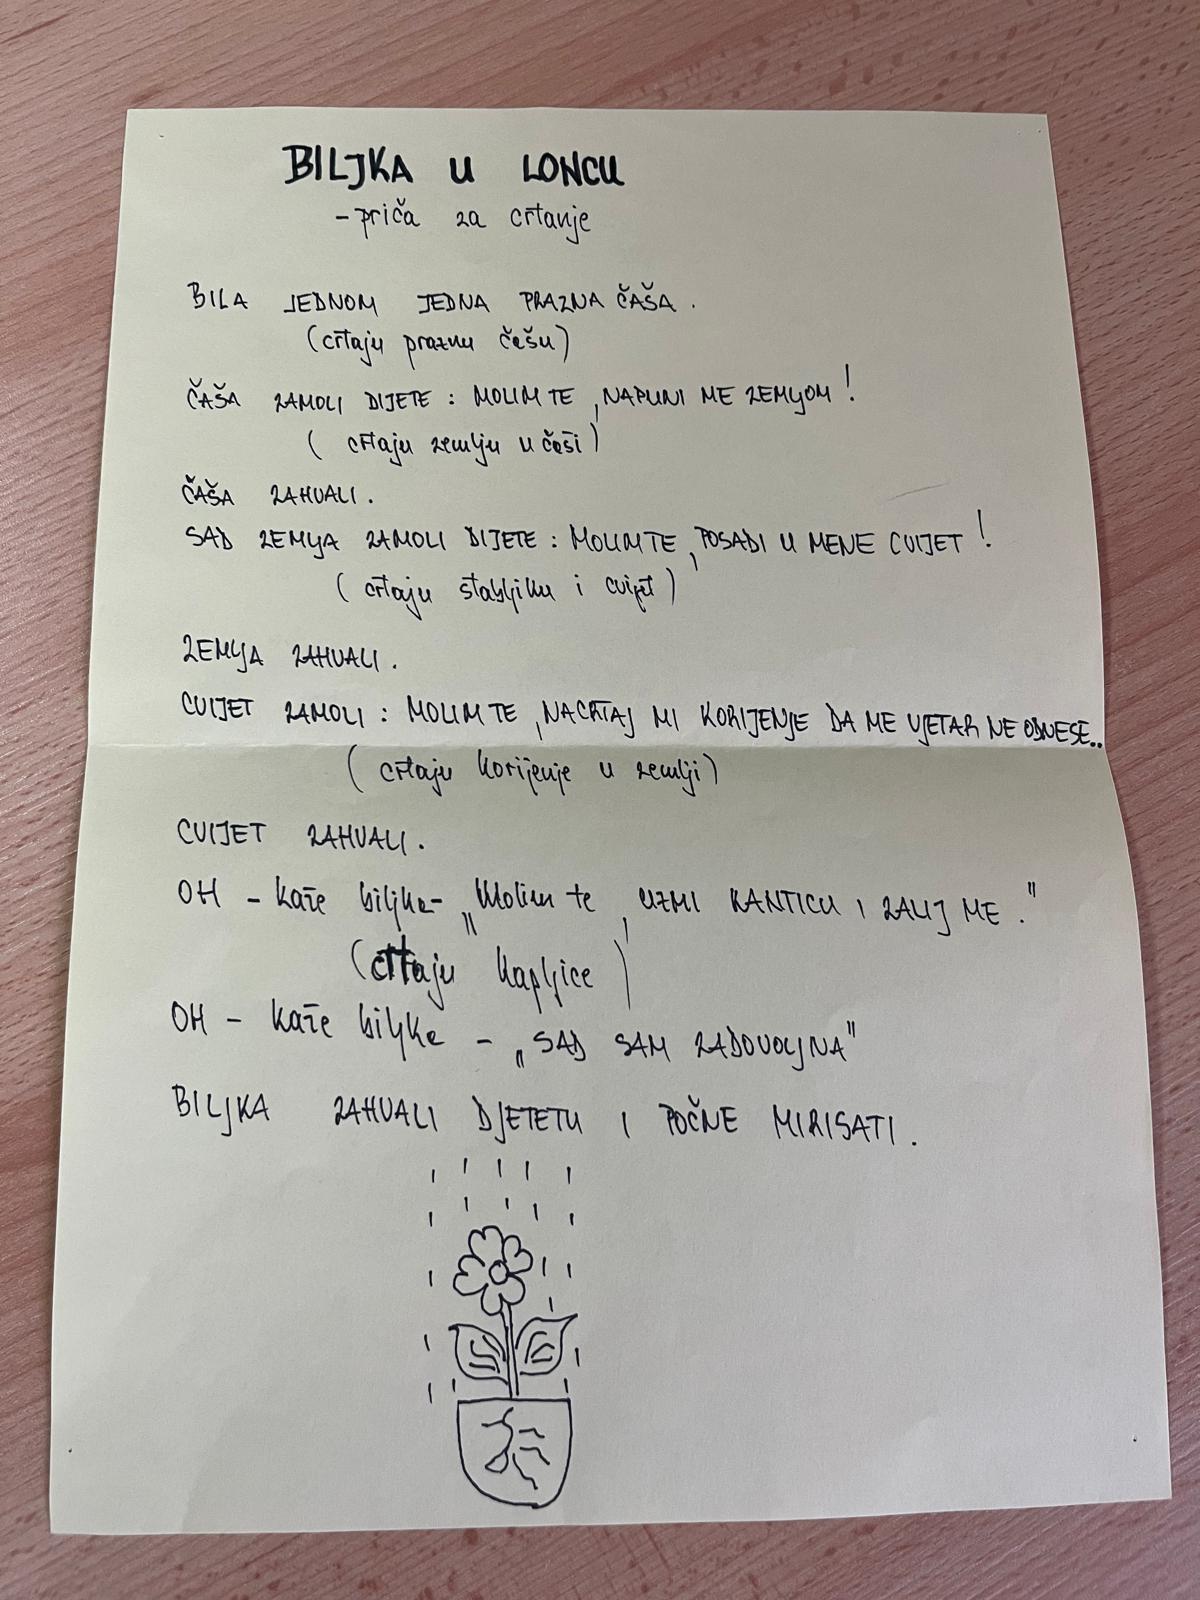 BILJKA U LONCU
-priča za crtanje
BILA JEDNOM JEDNA PRAZNA ČAŠA.
(crtaju praznu čašu)
ČAŠA ZAMOLI DIJETE: MOLIM TE, NAPUNI ME ZEMLJOM!
(crtaju zemlju u čaši)
ČAŠA ZAHVALI.
SAD ZEMLJA ZAMOLI DIJETE: MOLIM TE, POSADI U MENE CVIJET!
(crtaju stabljiku i cvijet)
ZEMLJA ZAHVALI.
CVIJET ZAMOLI: MOLIM TE, NACRTAJ MI KORIJENJE DA ME VJETAR NE ODNESE..
(crtaju korijenje u zemlji)
CVIJET ZAHVALI.
OH - kaže biljka- „Molim te, UZMI KANTICU I ZALIJ ME."
(crtaju kapljice)
OH - kaže biljka - „SAD SAM ZADOVOLJNA"
BILJKA ZAHVALI DJETETU I POČNE MIRISATI.